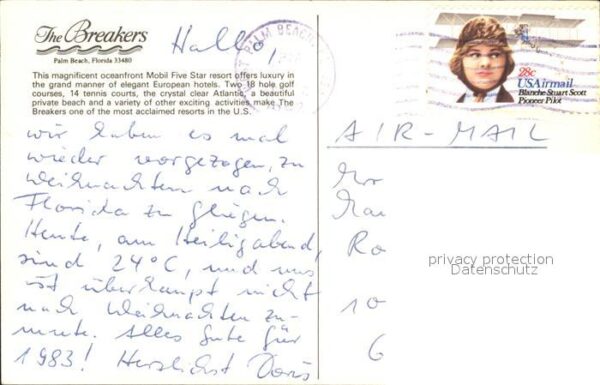 The Breakers
Palm Beach, Florida 33480
This magnificent oceanfront Mobil Five Star resort offers luxury in
the grand manner of elegant European hotels. Two 18 hole golf
courses, 14 tennis courts, the crystal clear Atlantic, a beautiful
private beach and a variety of other exciting activities make The
Breakers one of the most acclaimed resorts in the U.S.
Hallo,
wir haben es mal
wieder vorgezogen, zu
Weihnachten nach
Florida zu fliegen.
Heute, am Heiligabend,
sind 24°C, und uns
ist überhaupt nicht
nach Weihnachten zu-
mute. Alles Gute für
1983! Herzlichst Doris
PALM BEACH
28c
USAirmail
Blanche Stuart Scott
Pioneer Pilot
AIR-MAIL
Ro
10
privacy protection
Datenschutz